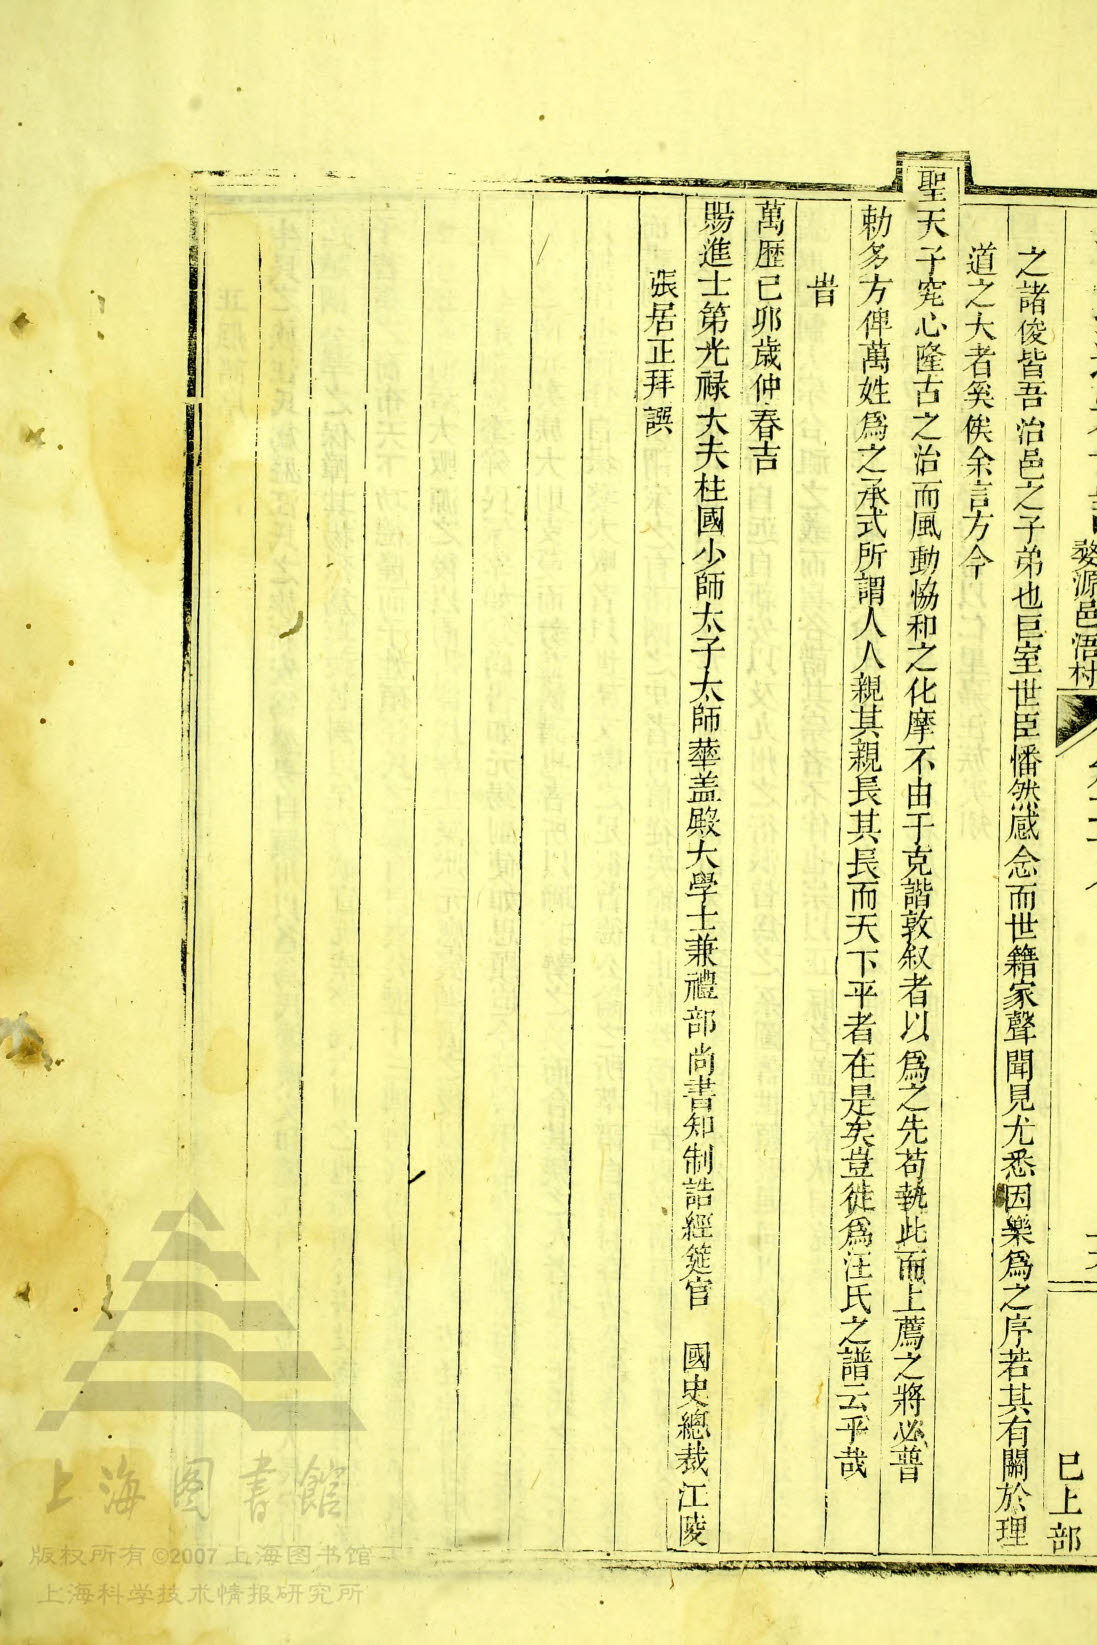 婺源邑浯村
巳上部
之諸俊皆吾治邑之子弟也巨室世臣憣然感念而世籍家聲聞見尤悉因樂爲之序若其有關於理
道之大者奚俟余言方今
聖天子究心隆古之治而風動恊和之化摩不由于克諧敦叙者以爲之先苟執此而上薦之將必普
勅多方俾萬姓爲之承式所謂人人親其親長其長而天下平者在是矣豈徒爲汪氏之譜云乎哉
旹
萬歷巳卯歲仲春吉
賜進士第光祿大夫柱國少師太子太師華盖殿大學士兼禮部尚書知制誥經筵官　國史總裁江陵
張居正拜譔
上海图书館
版权所有©2007上海图书馆
上海科学技术情报研究所